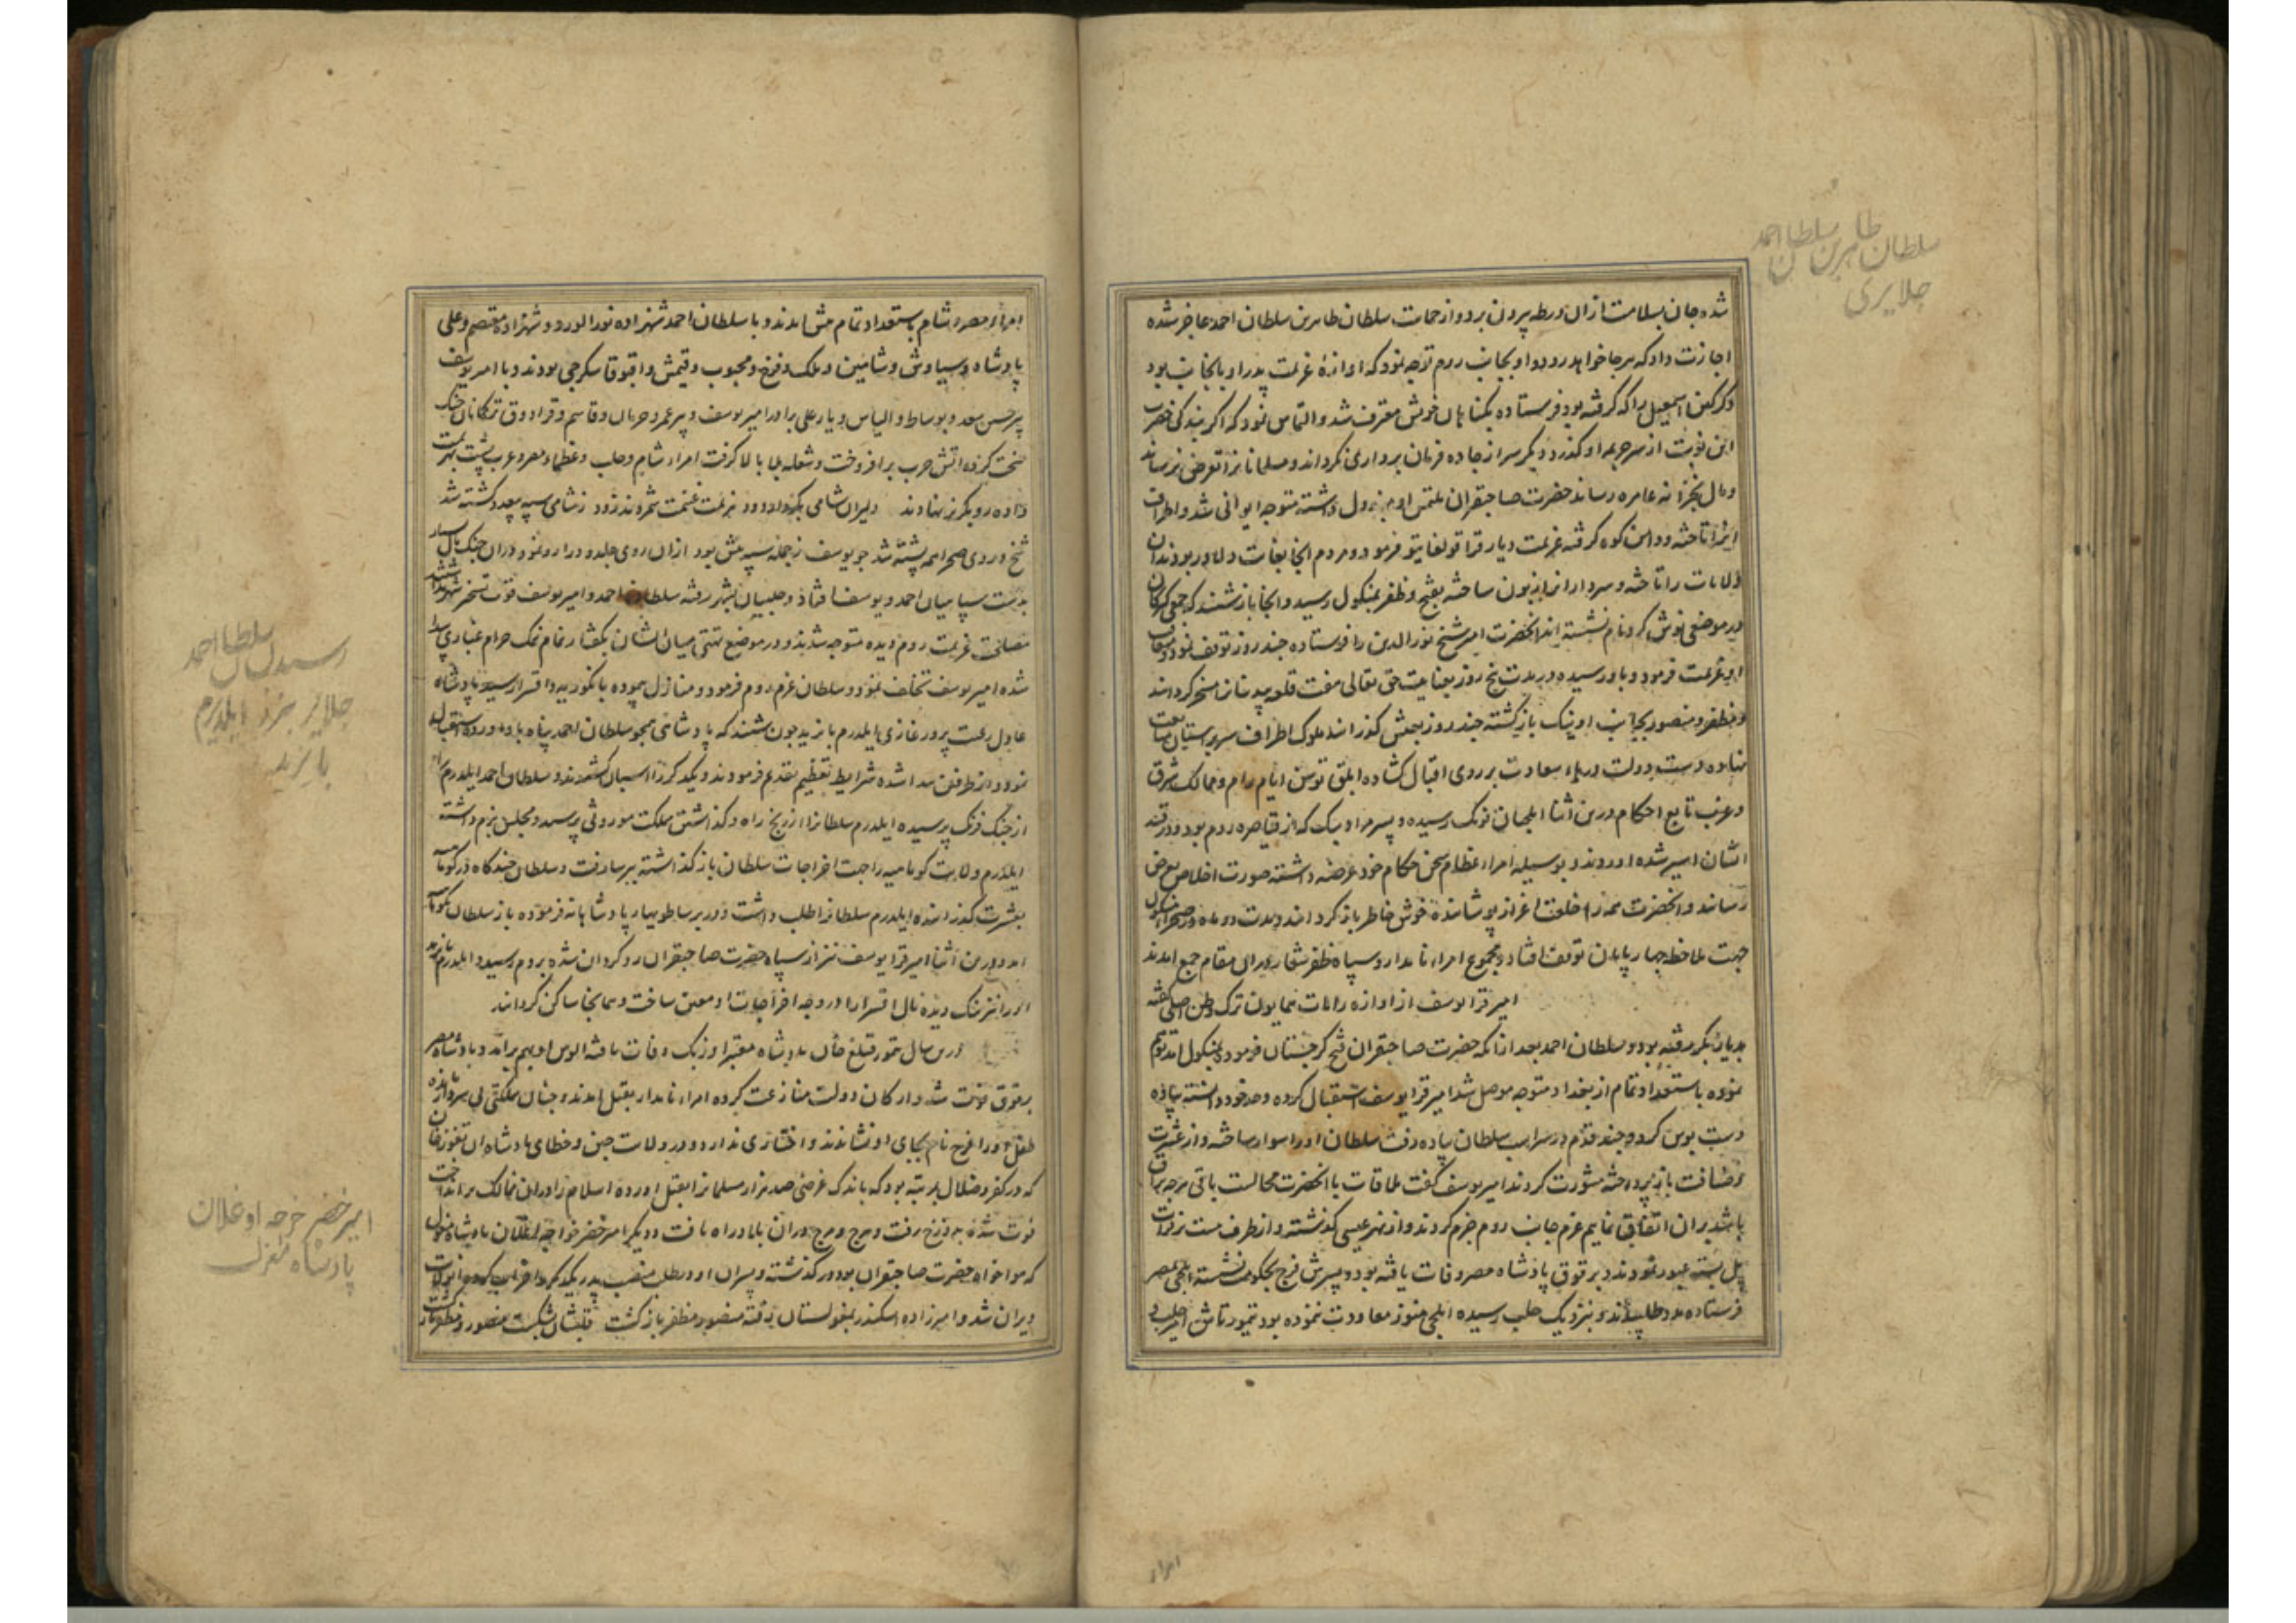 شده جان بسلامت ازان ورطه بیرون برد و از حمات سلطان طاهربن سلطان احمد عاجز شده
اجازت داد که هر جا خواهد رود و او بجانب روم توجه نمود که اوازهٔ عزیمت پدر او بانجانب بود
و کرکین اسمعیل را که کرفته بود فرستاده بکناهان خویش معترف شد و التماس نمود که اکر بندکی حضرت
این نوبت از سر جریمه او کذرد دیکر سر از جاده فرمان برداری نکرداند و مسلمانانرا تعرض نرساند
و مال بخزانه عامره رساند حضرت صاحبقران ملتمس او مبذول داشته متوجه ایوانی شد و اطراف
انرا تاخته و دامن کوه کرفته عزیمت دیار قراقولغانیق فرمود و مردم انجا
ولایات را تاخته و سرداران را زبون ساخته بفتح و ظفر بمنکول رسید و انجا باز شنید که جمعی کرکان
در موضعی کرد نام نشسته اند انحضرت امیر شیخ نورالدین را فرستاده چند روز توقف نمود و
او عزیمت فرمود و باور سیده در مدت پنج روز بعنایت حق تعالی هفت قلعه بیدینان مسخر کردانید
و مظفر و منصور بجانب اونیک باز کشته چند روز بعیش کذرانید ملوک اطراف سر بر استان
نهاده دست دولت در سعادت بر روی اقبال کشاده ابلق توسن ایام رام و ممالک شرق
و غرب تابع احکام درین اثنا ایلچیان فرنک رسیده و پسر مراد بیک که از قیاصره روم بود و در قید
ایشان اسیر شده اوردند و بوسیله امراء عظام سخن حکام خود عرضه داشته صورت اخلاص بعرض
رسانید و انحضرت همه را خلعت اعزاز پوشانیده خوش خاطر باز کردانید و مدت دو ماه در صحرا منکول
جهت ملاحظه چهارپایان توقف افتاد و مجموع امراء نامدار و سپاه ظفر شعار در ان مقام جمع امدند
امیر قرا یوسف از اوازه رایات همایون ترک وطن اصلی کفته
بدیار بکر رفته بود و سلطان احمد بعد ازانکه حضرت صاحبقران فتح کرجستان فرمود و بمنکول امد توهم
نموده باستعداد تمام از بغداد متوجه موصل شد امیر قرا یوسف استقبال کرده و حد خود دانسته پیاده
دست بوس کرد و چند قدم در رکاب سلطان پیاده رفت سلطان او را سوار ساخته و از عشرت
و ضیافت باز پرداخته مشورت کردند امیر یوسف کفت ملاقات با انحضرت محالست باقی هر چه
باشد بران اتفاق نمایم عزم جانب روم جزم کردند و از نهر عیسی کذشته و از طرف هیت بر فرات
پل بسته عبور نمودند و برقوق پادشاه مصر وفات یافته بود و پسرش فرج بحکومت نشسته ایلچی بمصر
فرستاده مدد طلبیدند و بنزدیک حلب رسیده ایلچی هنوز معاودت ننموده بود تیمورتاش امیر حلب
امراء
سلطان طاهربن سلطان احمد
جلایری
امراء مصر و شام باستعداد تمام پیش امدند و با سلطان احمد شهزاده نورالورد و شهزاده معتصم و علی
پادشاه و سیاوش و شاهین و ملک و فرخ و محبوب و قتمش و اقبوقا سکرجی بودند و با امیر یوسف
پیر حسن سعد و بوساط و الیاس و یار علی برادر امیر یوسف و پیر عمر و و قاسم و قرا دوق ترکمانان جنک
سخت کرده اتش حرب برافروخت و شعله بلا بالا کرفت امراء شام و حلب و عظماء مصر و عرب پشت بهزیمت
داده رو بکریز نهادند دلیران شامی هزیمت غنیمت شمردند زود ز شامی سپه بیعدد کشته شد
شخ و روی صحرا همه پشته شد چو یوسف ز جمله سپه پیش بود ازان روی جلدی دران رو نمود دران جنک مال بسیار
بدست سپاهیان احمد و یوسف افتاد و حلبیان بشهر رفته سلطان احمد و امیر یوسف قوت تسخیر شهر نداشتند
مصلحت عزیمت روم دیده متوجه شدند و در موضع میان ایشان بکفتار نمام نمک حرام غباری پیدا
شده امیر یوسف تخلف نمود و سلطان عزم روم فرمود و منازل پیموده بانکوریه و اقسرا رسید پادشاه
عادل رعیت پرور غازی ایلدرم بایزید چون شنید که پادشاهی همچو سلطان احمد پناه باو اورده استقبال
نمود و از طرفین پیدا شده شرایط تعظیم تقدیم فرمودند و یکدیکر را اسبان کشیدند و سلطان احمد ایلدرم را
از جنک فرنک پرسیده ایلدرم سلطانرا از رنج راه و کذاشتن مملکت موروثی پرسید و مجلس بزم داشته
ایلدرم ولایت کوتاهیه را جهت اخراجات سلطان باز کذاشته ببرسا رفت و سلطان چندکاه در کوتاهیه
بعشرت کذرانیده ایلدرم سلطانرا طلب داشت و در برسا طویهاء پادشاهانه فرموده باز سلطان بکوتاهیه
امد و درین اثنا امیر قرا یوسف نیز از سپاه حضرت صاحبقران رو کردان شده بروم رسید و ایلدرم بایزید
او را نیز نیک دیده مال اقسرا را در وجه اخراجات او معین ساخت و همانجا ساکن کردانید
درین سال تیمور قتلغ خان پادشاه معتبر اوزبک وفات یافته الوس او بهم برامد و پادشاه مصر
برقوق فوت شد و ارکان دولت منازعت کرده امراء نامدار بقتل امدند و چنان مملکتی بی سر و
طفلی او را فرج نام بجای او نشاندند و اختیاری ندارد و در ولایت چین و خطای پادشاه ان تنغوزخان
که در کفر و ضلال بمرتبه بود که باندک غرضی صد هزار مسلمانرا بقتل اورده اسلام را از ان ممالک برانداخت
فوت شده بدوزخ رفت و هرج و مرج دران بلاد راه یافت و دیکر امیر خضر خواجه اغلان پادشاه مغول
که هواخواه حضرت صاحبقران بود در کذشته و پسران او در طلب منصب پدر یکدیکر را خراب کردند و ان ولایت
ویران شد و امیرزاده اسکندر بمغولستان رفته منصور و مظفر باز کشت
رسیدن سلطان احمد
جلایر بنزد ایلدیرم
بایزید
امیر خضر خوجه اوغلان
پادشاه مغول